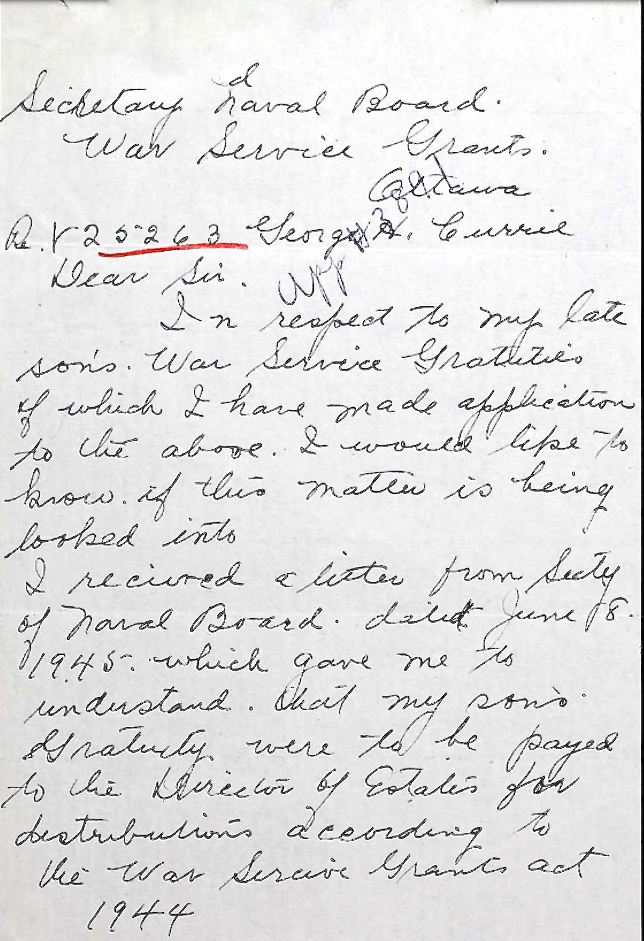 Secretary d Naval Board.
War Service Grants.
Ottawa
Re. V 25263 George A. Currie
App
Dear Sir.
In respect to my late
son's. War Service Gratuties
of which I have made application
to the above. I would like to
know. if this matter is being
looked into
I recieved a letter from Secty
of Naval Board. dated June 8.
1945. which gave me to
understand. that my son's.
Gratuity were to be payed
to the Director of Estates for
distributions according to
the War Sercive Grants act
1944